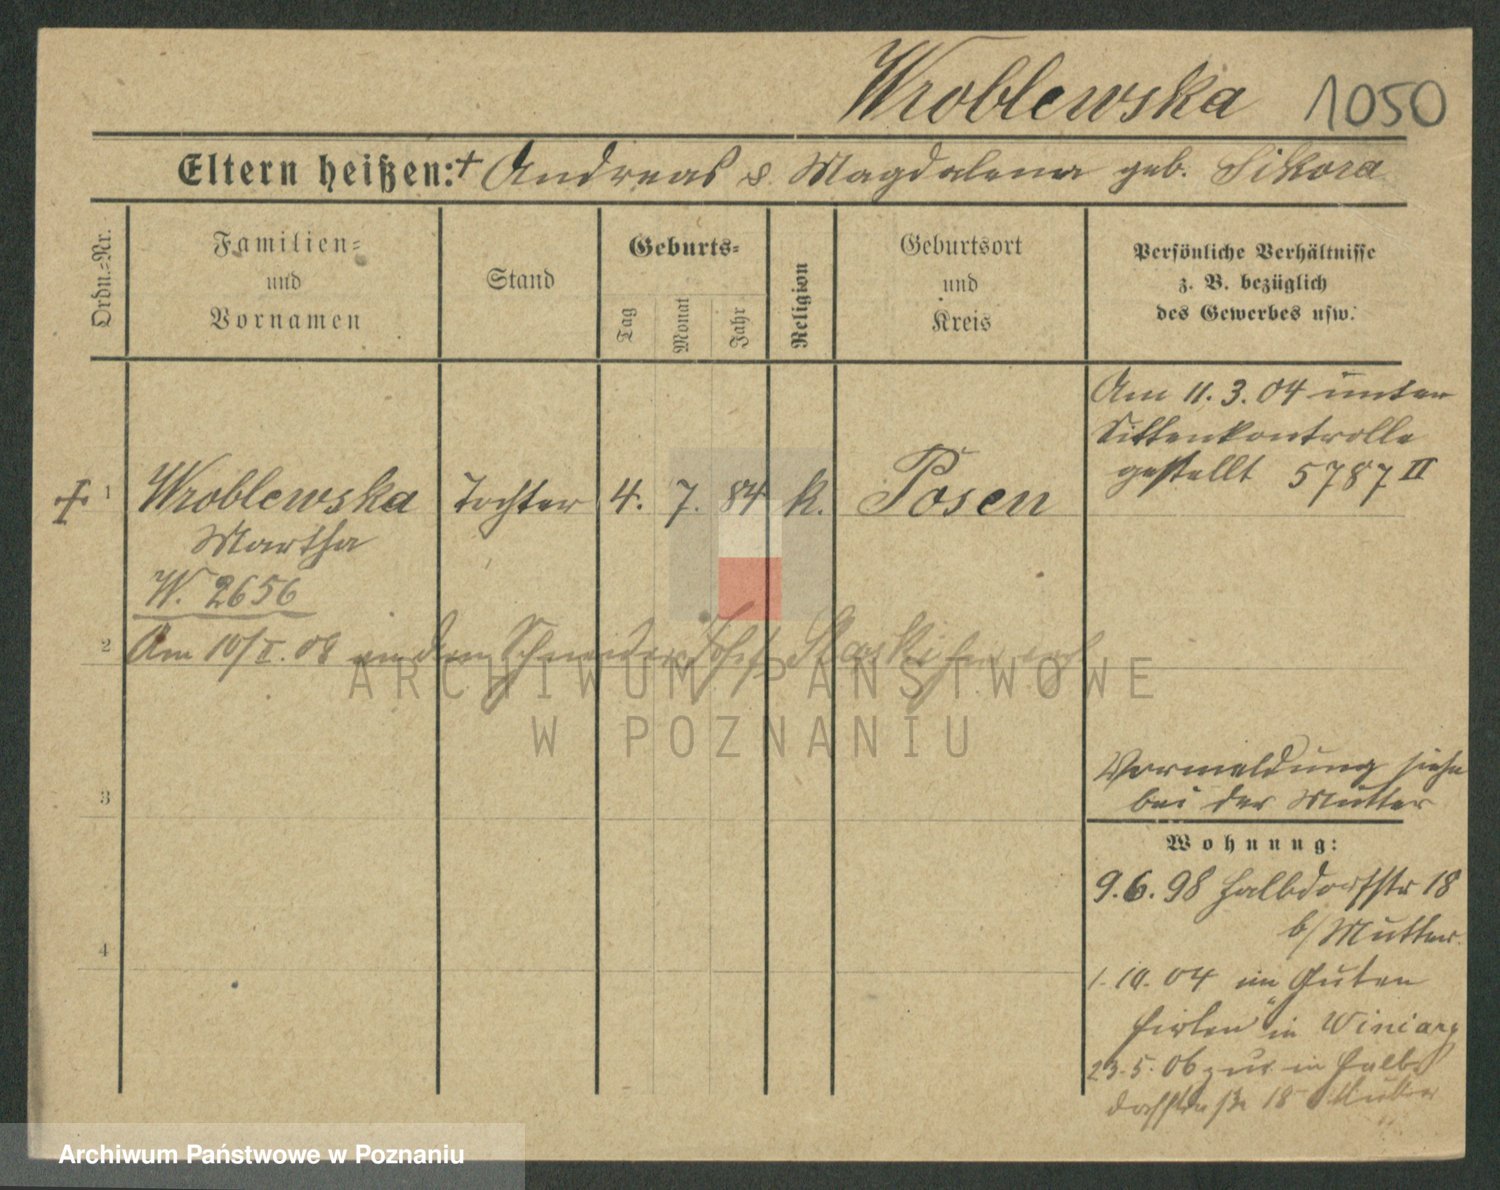 Wroblewska 1050
Eltern heißen: + Andreas & Magdalena geb. Sikora
Ordn.-Nr.
Familien-
und
Vornamen
Stand
Geburts-
Tag
Monat
Jahr
Religion
Geburtsort
und
Kreis
Persönliche Verhältnisse
z. B. bezüglich
des Gewerbes usw.
Am 11. 3. 04 unter
Sittenkontrolle
gestellt 5787 II
1 Wroblewska Tochter 4. 7. 84 k. Posen
Martha
W. 2656
2 Am 10/I. 08 an den Schneider Josef
ARCHIWUM PAŃSTWOWE
W POZNANIU
Vormeldung siehe
bei der Mutter
3
Wohnung:
9. 6. 98 Halbdorfstr 18
b/ Mutter.
4
1. 10. 04 im "Guten
Hirten" in Winiary
23. 5. 06 zur in Halb
dorfstraße 18 Mutter
Archiwum Państwowe w Poznaniu